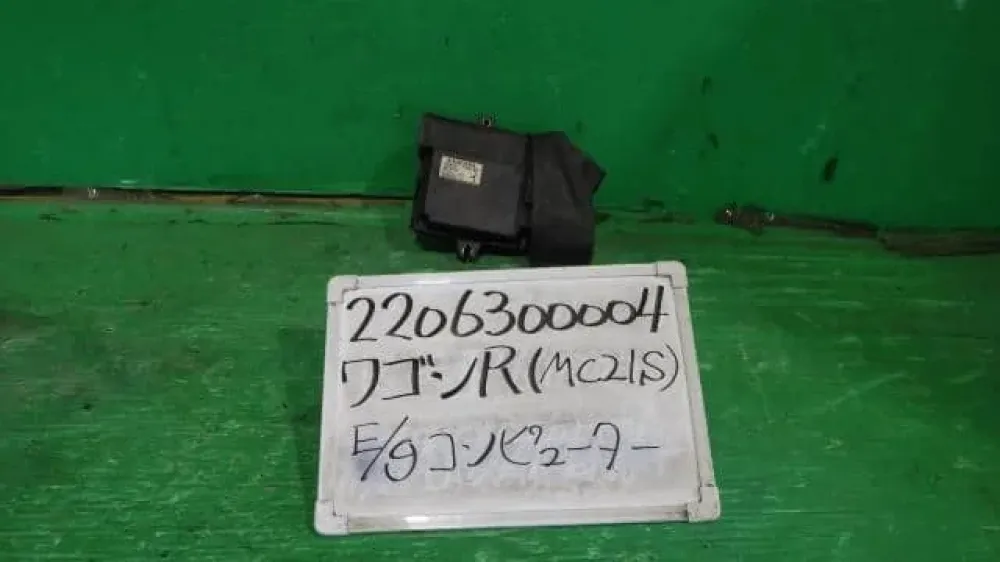 2206300004
ワゴンR(MC21S)
E/gコンピューター